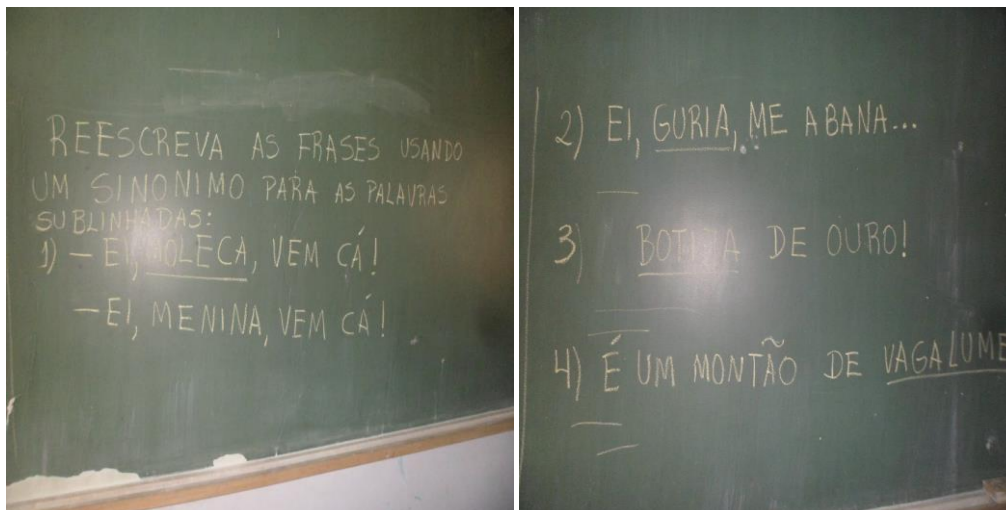 REESCREVA AS FRASES USANDO
UM SINONIMO PARA AS PALAVRAS
SUBLINHADAS:
1) – EI, MOLECA, VEM CÁ!
– EI, MENINA, VEM CÁ!
2) EI, GURIA, ME ABANA...
3) BOTIJA DE OURO!
4) É UM MONTÃO DE VAGALUME